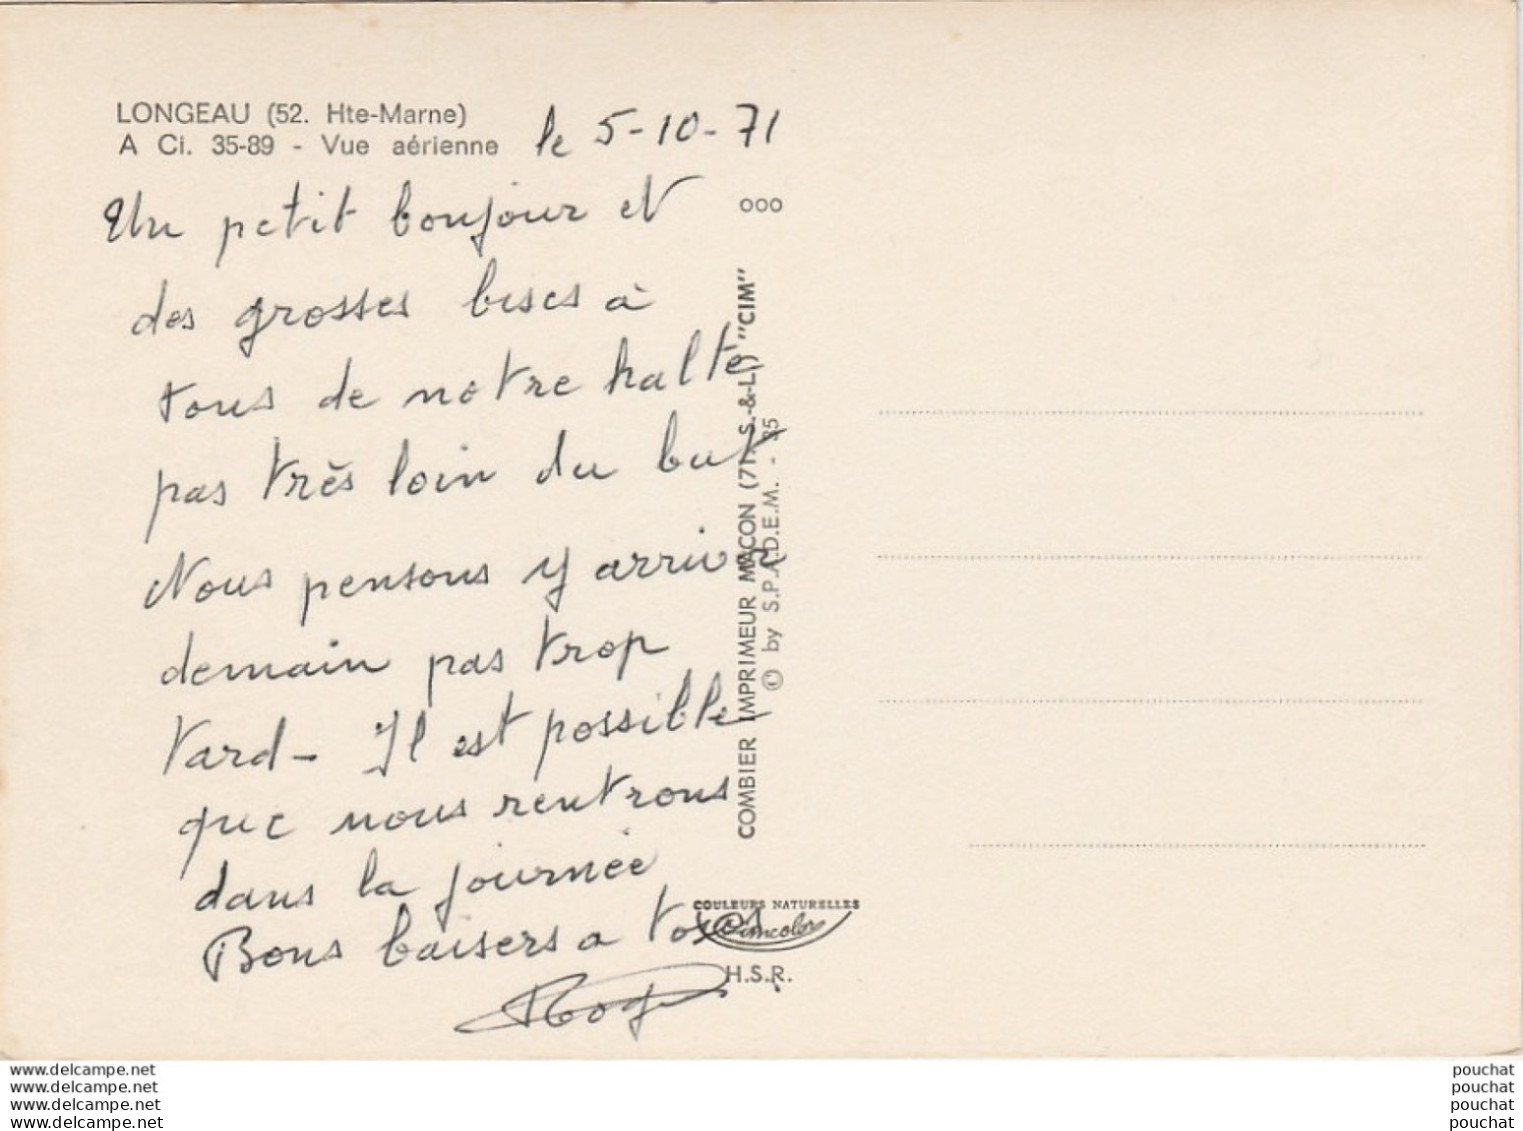 LONGEAU (52. Hte-Marne)
A Ci. 35-89 - Vue aérienne
le 5-10-71
Un petit bonjour et
des grosses bises à
tous de notre halte
pas très loin du but
Nous pensons y arriver
demain pas trop
tard - Il est possible
que nous rentrons
dans la journée
Bons baisers a tous
Roger
ooo
COMBIER IMPRIMEUR MACON (71. S.-&-L.) "CIM"
© by S.P.A.D.E.M. - 35
COULEURS NATURELLES
Cimcolor
H.S.R.
www.delcampe.net
www.delcampe.net
www.delcampe.net
www.delcampe.net
pouchat
pouchat
pouchat
pouchat